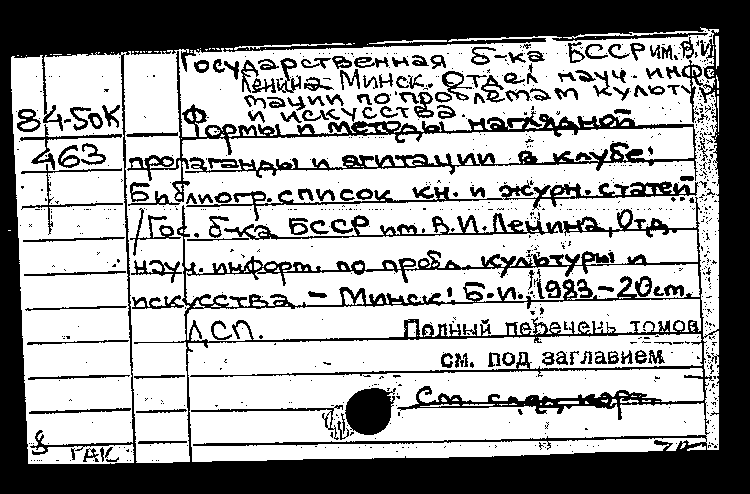 Государственная б-ка БССР им. В.И
Ленина. Минск. Отдел науч. инфо
мации по проблемам культур
и искусства.
84-50К
Формы и методы наглядной
463
пропаганды и агитации в клубе:
Библиогр. список кн. и журн. статей
/Гос. б-ка БССР им. В.И. Ленина, Отд.
науч. информ. по пробл. культуры и
искусства. – Минск: Б.И., 1983. – 20 см.
ДСП.
Полный перечень томов
см. под заглавием
См. след. карт.
8 ГАК